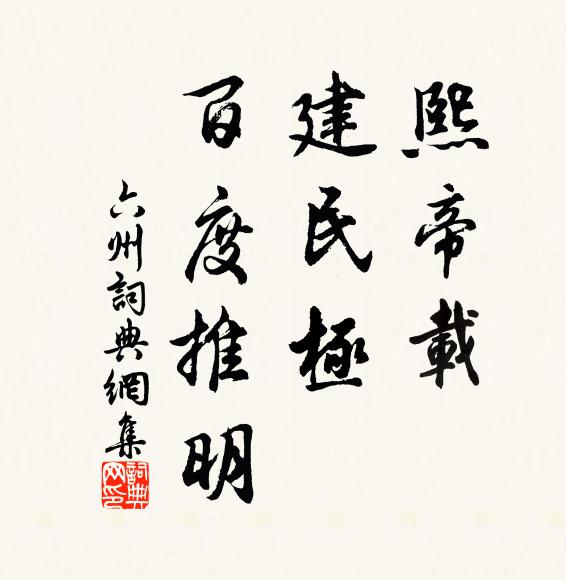 熙帝載
建民極
百度推明
六州詞典網集
詞典网印